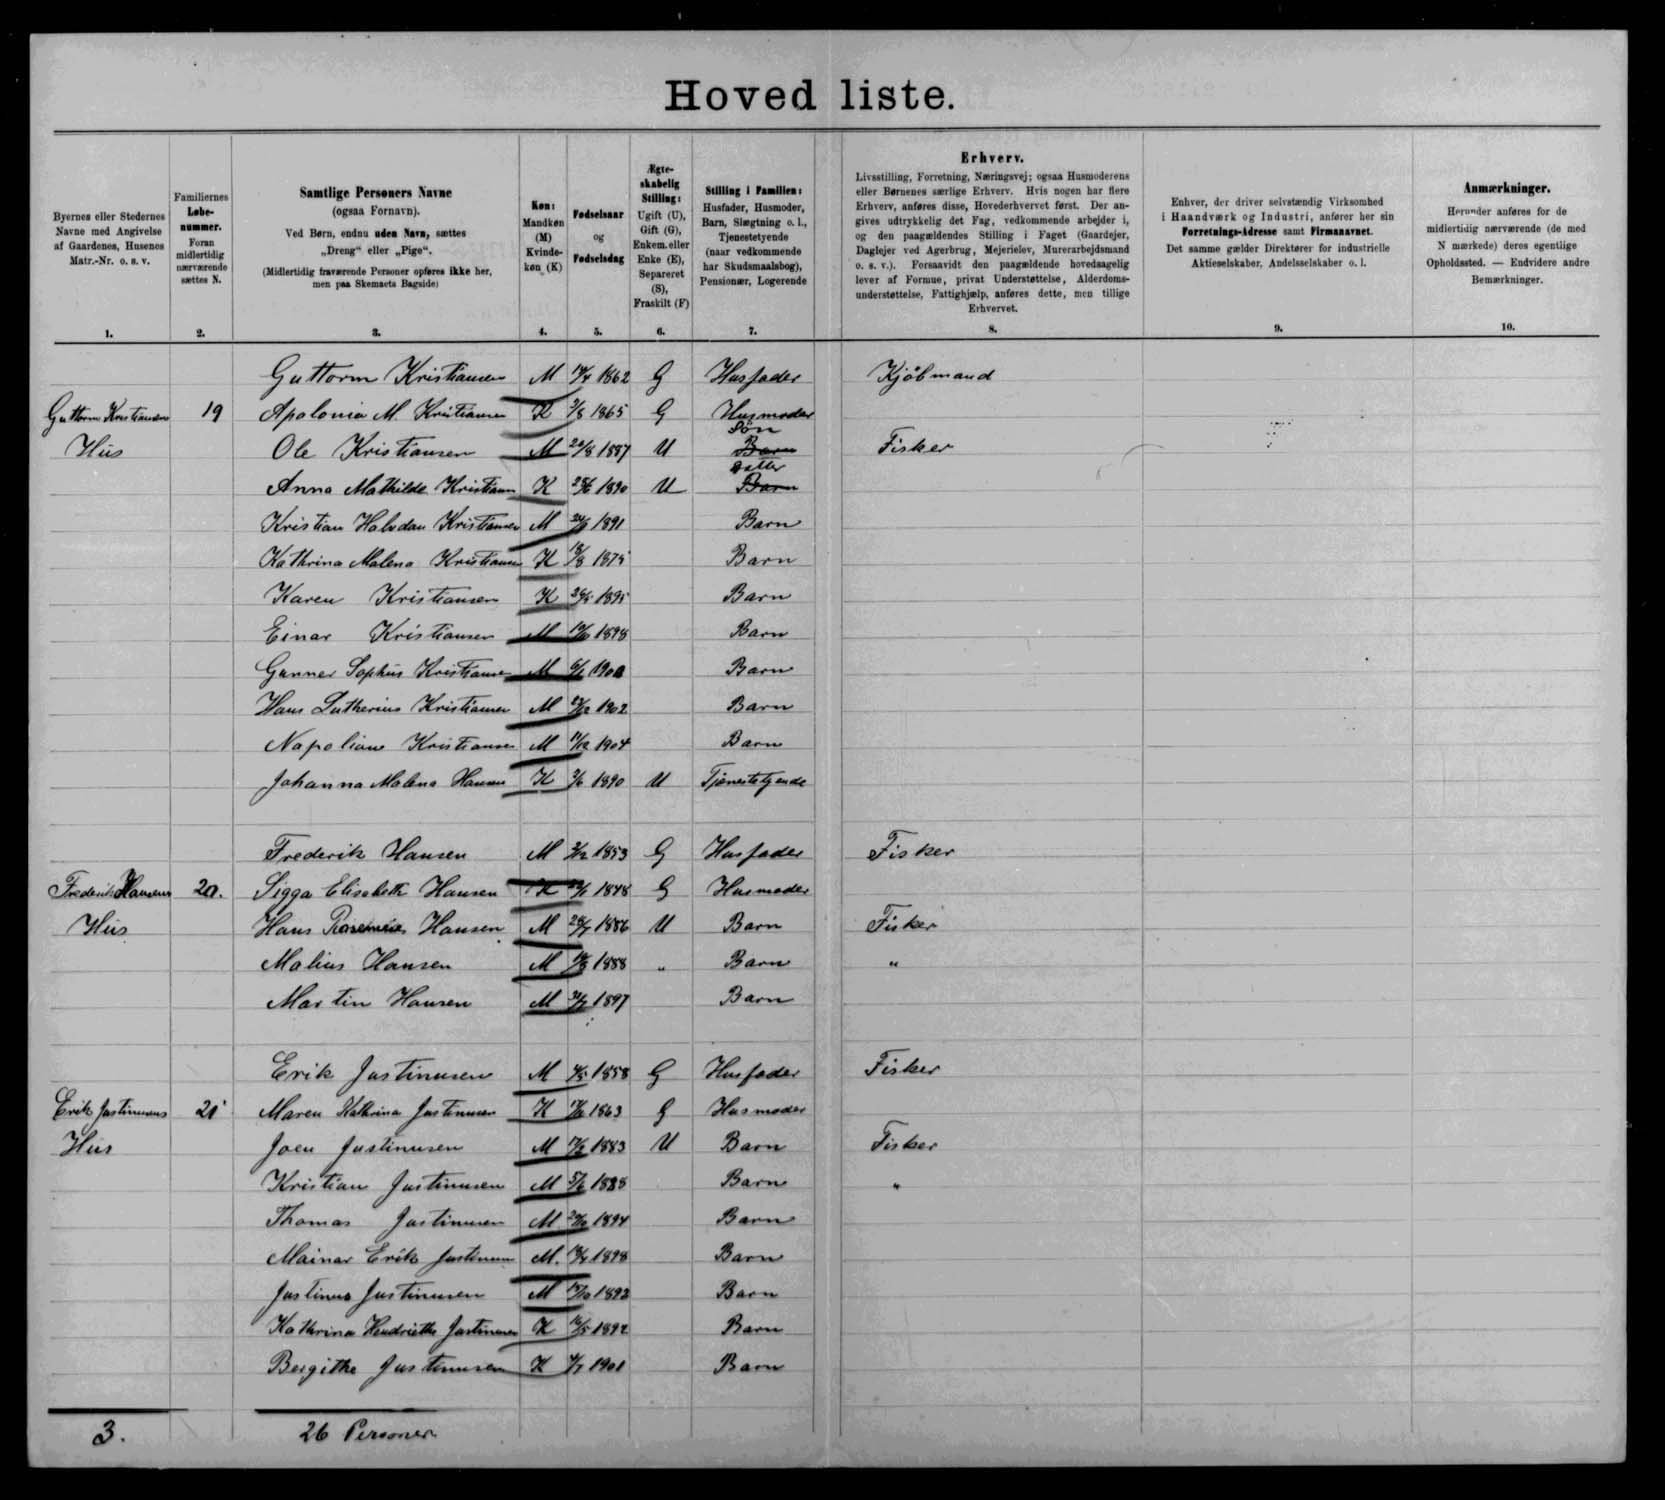 Hoved liste.
Byernes eller Stedernes Navne med Angivelse af Gaardenes, Husenes Matr.-Nr. o. s. v.
Familiernes Løbenummer. Foran midlertidig nærværende sættes N.
Samtlige Personers Navne (ogsaa Fornavn). Ved Børn, endnu uden Navn, sættes „Dreng“ eller „Pige“. (Midlertidig fraværende Personer opføres ikke her, men paa Skemaets Bagside)
Køn: Mandkøn (M) Kvindekøn (K)
Fødselsaar og Fødselsdag
Ægteskabelig Stilling: Ugift (U), Gift (G), Enkem. eller Enke (E), Separeret (S), Fraskilt (F)
Stilling i Familien: Husfader, Husmoder, Barn, Slægtning o. l., Tjenestetyende (naar vedkommende har Skudsmaalsbog), Pensionær, Logerende
Erhverv. Livsstilling, Forretning, Næringsvej; ogsaa Husmoderens eller Børnenes særlige Erhverv. Hvis nogen har flere Erhverv, anføres disse, Hovederhvervet først. Der angives udtrykkelig det Fag, vedkommende arbejder i, og den paagældendes Stilling i Faget (Gaardejer, Daglejer ved Agerbrug, Mejerielev, Murerarbejdsmand o. s. v.). Forsaavidt den paagældende hovedsagelig lever af Formue, privat Understøttelse, Alderdomsunderstøttelse, Fattighjælp, anføres dette, men tillige Erhvervet.
Enhver, der driver selvstændig Virksomhed i Haandværk og Industri, anfører her sin Forretnings-Adresse samt Firmanavnet. Det samme gælder Direktører for industrielle Aktieselskaber, Andelsselskaber o. l.
Anmærkninger. Herunder anføres for de midlertidig nærværende (de med N mærkede) deres egentlige Opholdssted. — Endvidere andre Bemærkninger.
1. 2. 3. 4. 5. 6. 7. 8. 9. 10.
Guttorm Kristiansen M 1862 G Husfader Kjöbmand
Guttorm Kristiansens 19 Apolonia M. Kristiansen K 1865 G Husmoder
Hus Ole Kristiansen M 1887 U Barn Søn Fisker
Anna Mathilde Kristiansen K 1890 U Barn Datter
Kristian Halvdan Kristiansen M 1891 Barn
Kathrina Malena Kristiansen K 1875 Barn
Karen Kristiansen K 1895 Barn
Einar Kristiansen M 1898 Barn
Gunner Sophus Kristiansen M Barn
Hans Lutherius Kristiansen M 1902 Barn
Napolion Kristiansen M 11/12 1904 Barn
Johanna Malena Hansen K 1890 U Tjenestetyende
Frederik Hansen M 1853 G Husfader Fisker
Frederik Hansens 20. Sigga Elisabeth Hansen K 1848 G Husmoder
Hus Hans Hansen M 1886 U Barn Fisker
Malius Hansen M 1888 „ Barn „
Martin Hansen M 1897 Barn
Erik Justinusen M 1858 G Husfader Fisker
Erik Justinusens 21 Maren Kathrina Justinusen K 1863 G Husmoder
Hus Joen Justinusen M 1883 U Barn Fisker
Kristian Justinusen M 1888 Barn „
Thomas Justinusen M 1894 Barn
Mainar Erik Justinusen M. 1898 Barn
Justinus Justinusen M 1892 Barn
Kathrina Hendriette Justinusen K 1892 Barn
Bergithe Justinusen K 1901 Barn
3. 26 Personer